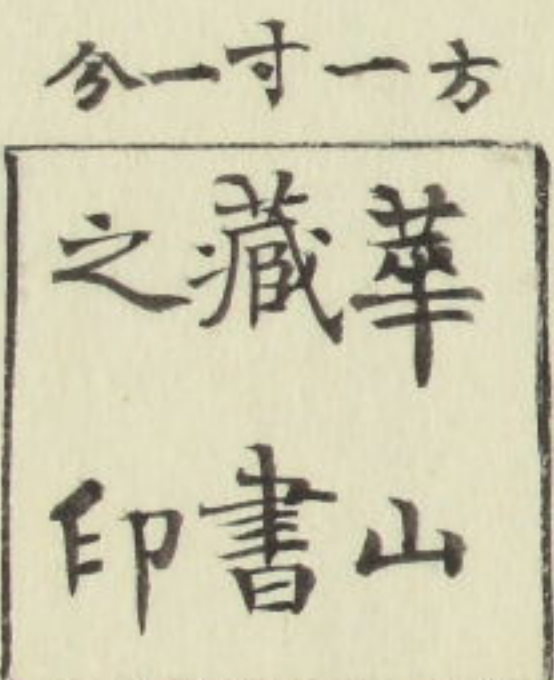 方一寸一分
華山
藏書
之印